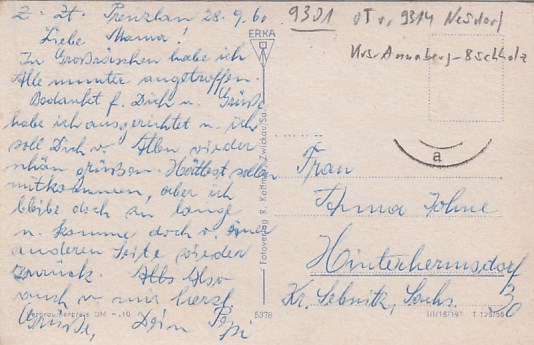 9301 OT v. 9314 Nesdorf
Krs. Annaberg-Buchholz
z. Zt. Prenzlau 28.9.60
Liebe Mama!
In Großräschen habe ich
Alle munter angetroffen.
Bedankt f. Dich u. Grüße
habe ich ausgerichtet u. ich
soll Dich v. Allen wieder
schön grüßen. Hättest sollen
mitkommen, aber ich
bleibe doch zu lange
u. komme doch v. einer
anderen Seite wieder
zurück. Also
auch v. mir herzl.
Grüße, Dein
ERKA
Fotoverlag R. Zwickau/Sa.
a
Frau
Johne
Hinterhermsdorf
Kr. Sebnitz, Sachs.
30
Verbraucherpreis DM -.10
5378
III/18/197